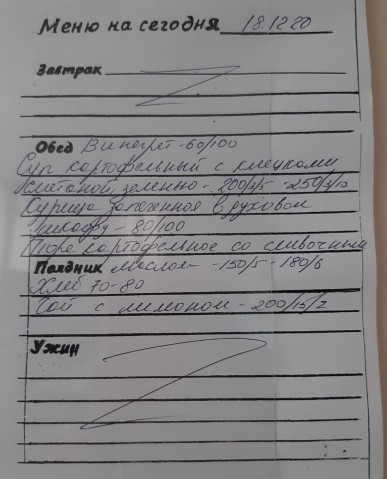 Меню на сегодня 18.12.20
Завтрак
Обед Винегрет - 60/100
Суп картофельный с клецками
сметаной, зеленью - 200/5/5 - 250/5/10
Курица запеченная в духовом
шкафу - 80/100
Пюре картофельное со сливочным
Полдник маслом - 150/5 - 180/6
Хлеб 70-80
Чай с лимоном - 200/15/7
Ужин